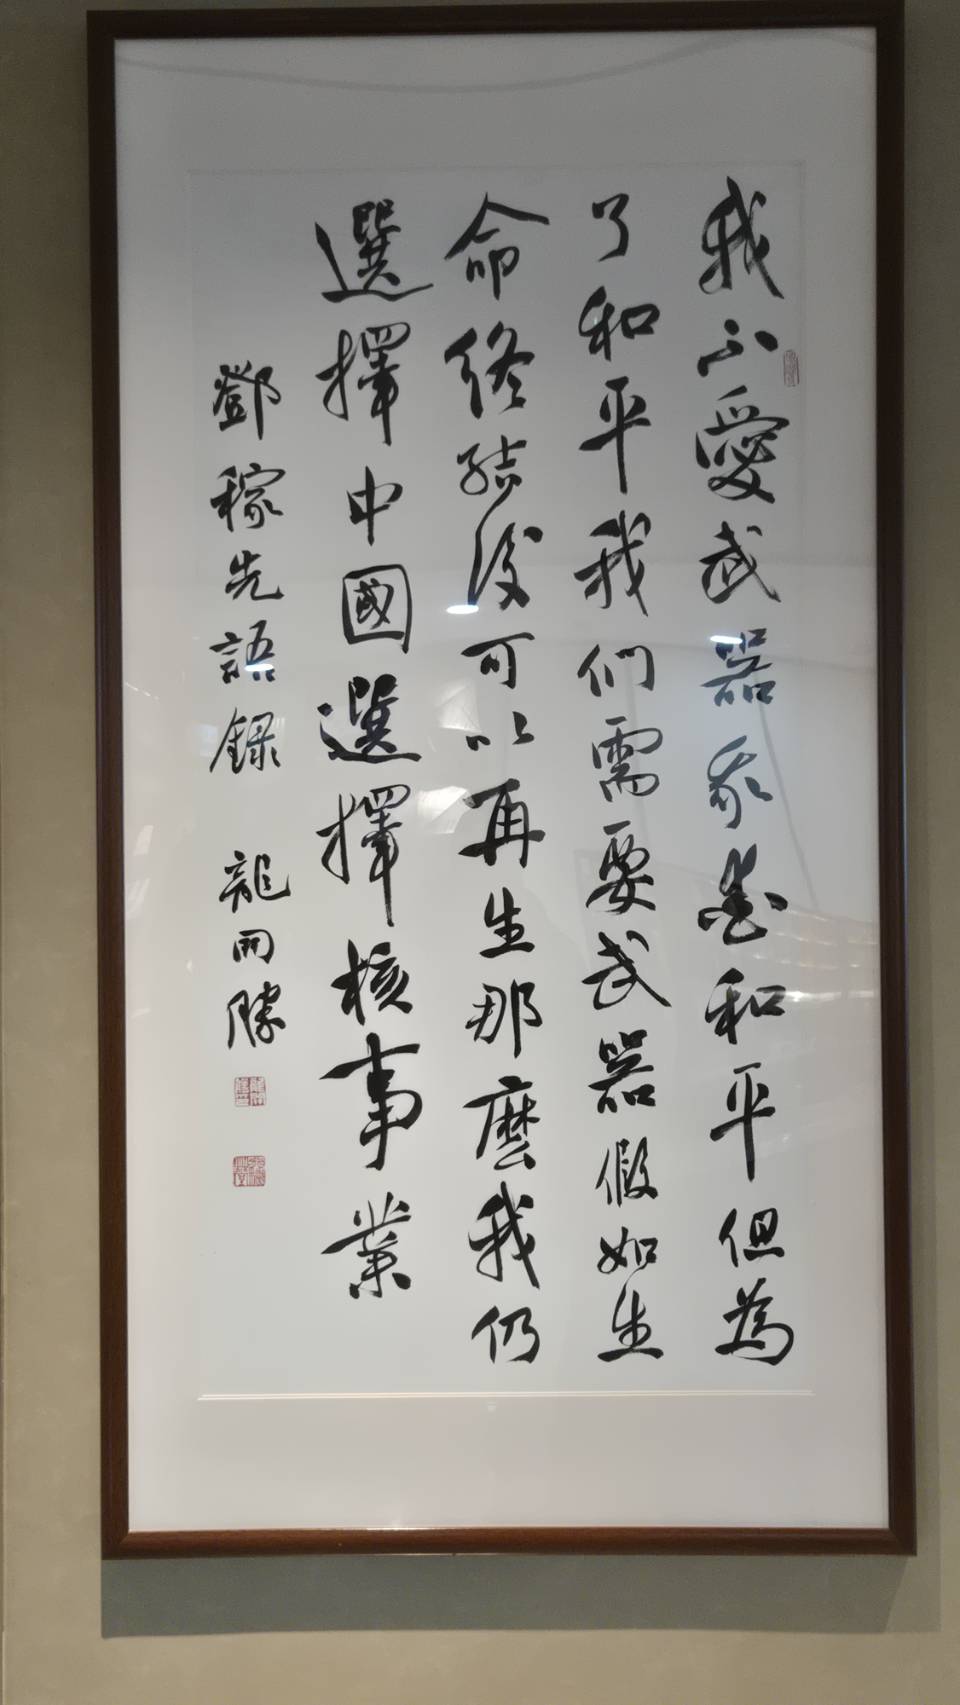 我不愛武器我愛和平但為
了和平我们需要武器假如生
命終結後可以再生那麽我仍
選擇中國選擇核事業
鄧稼先語録 龍開勝